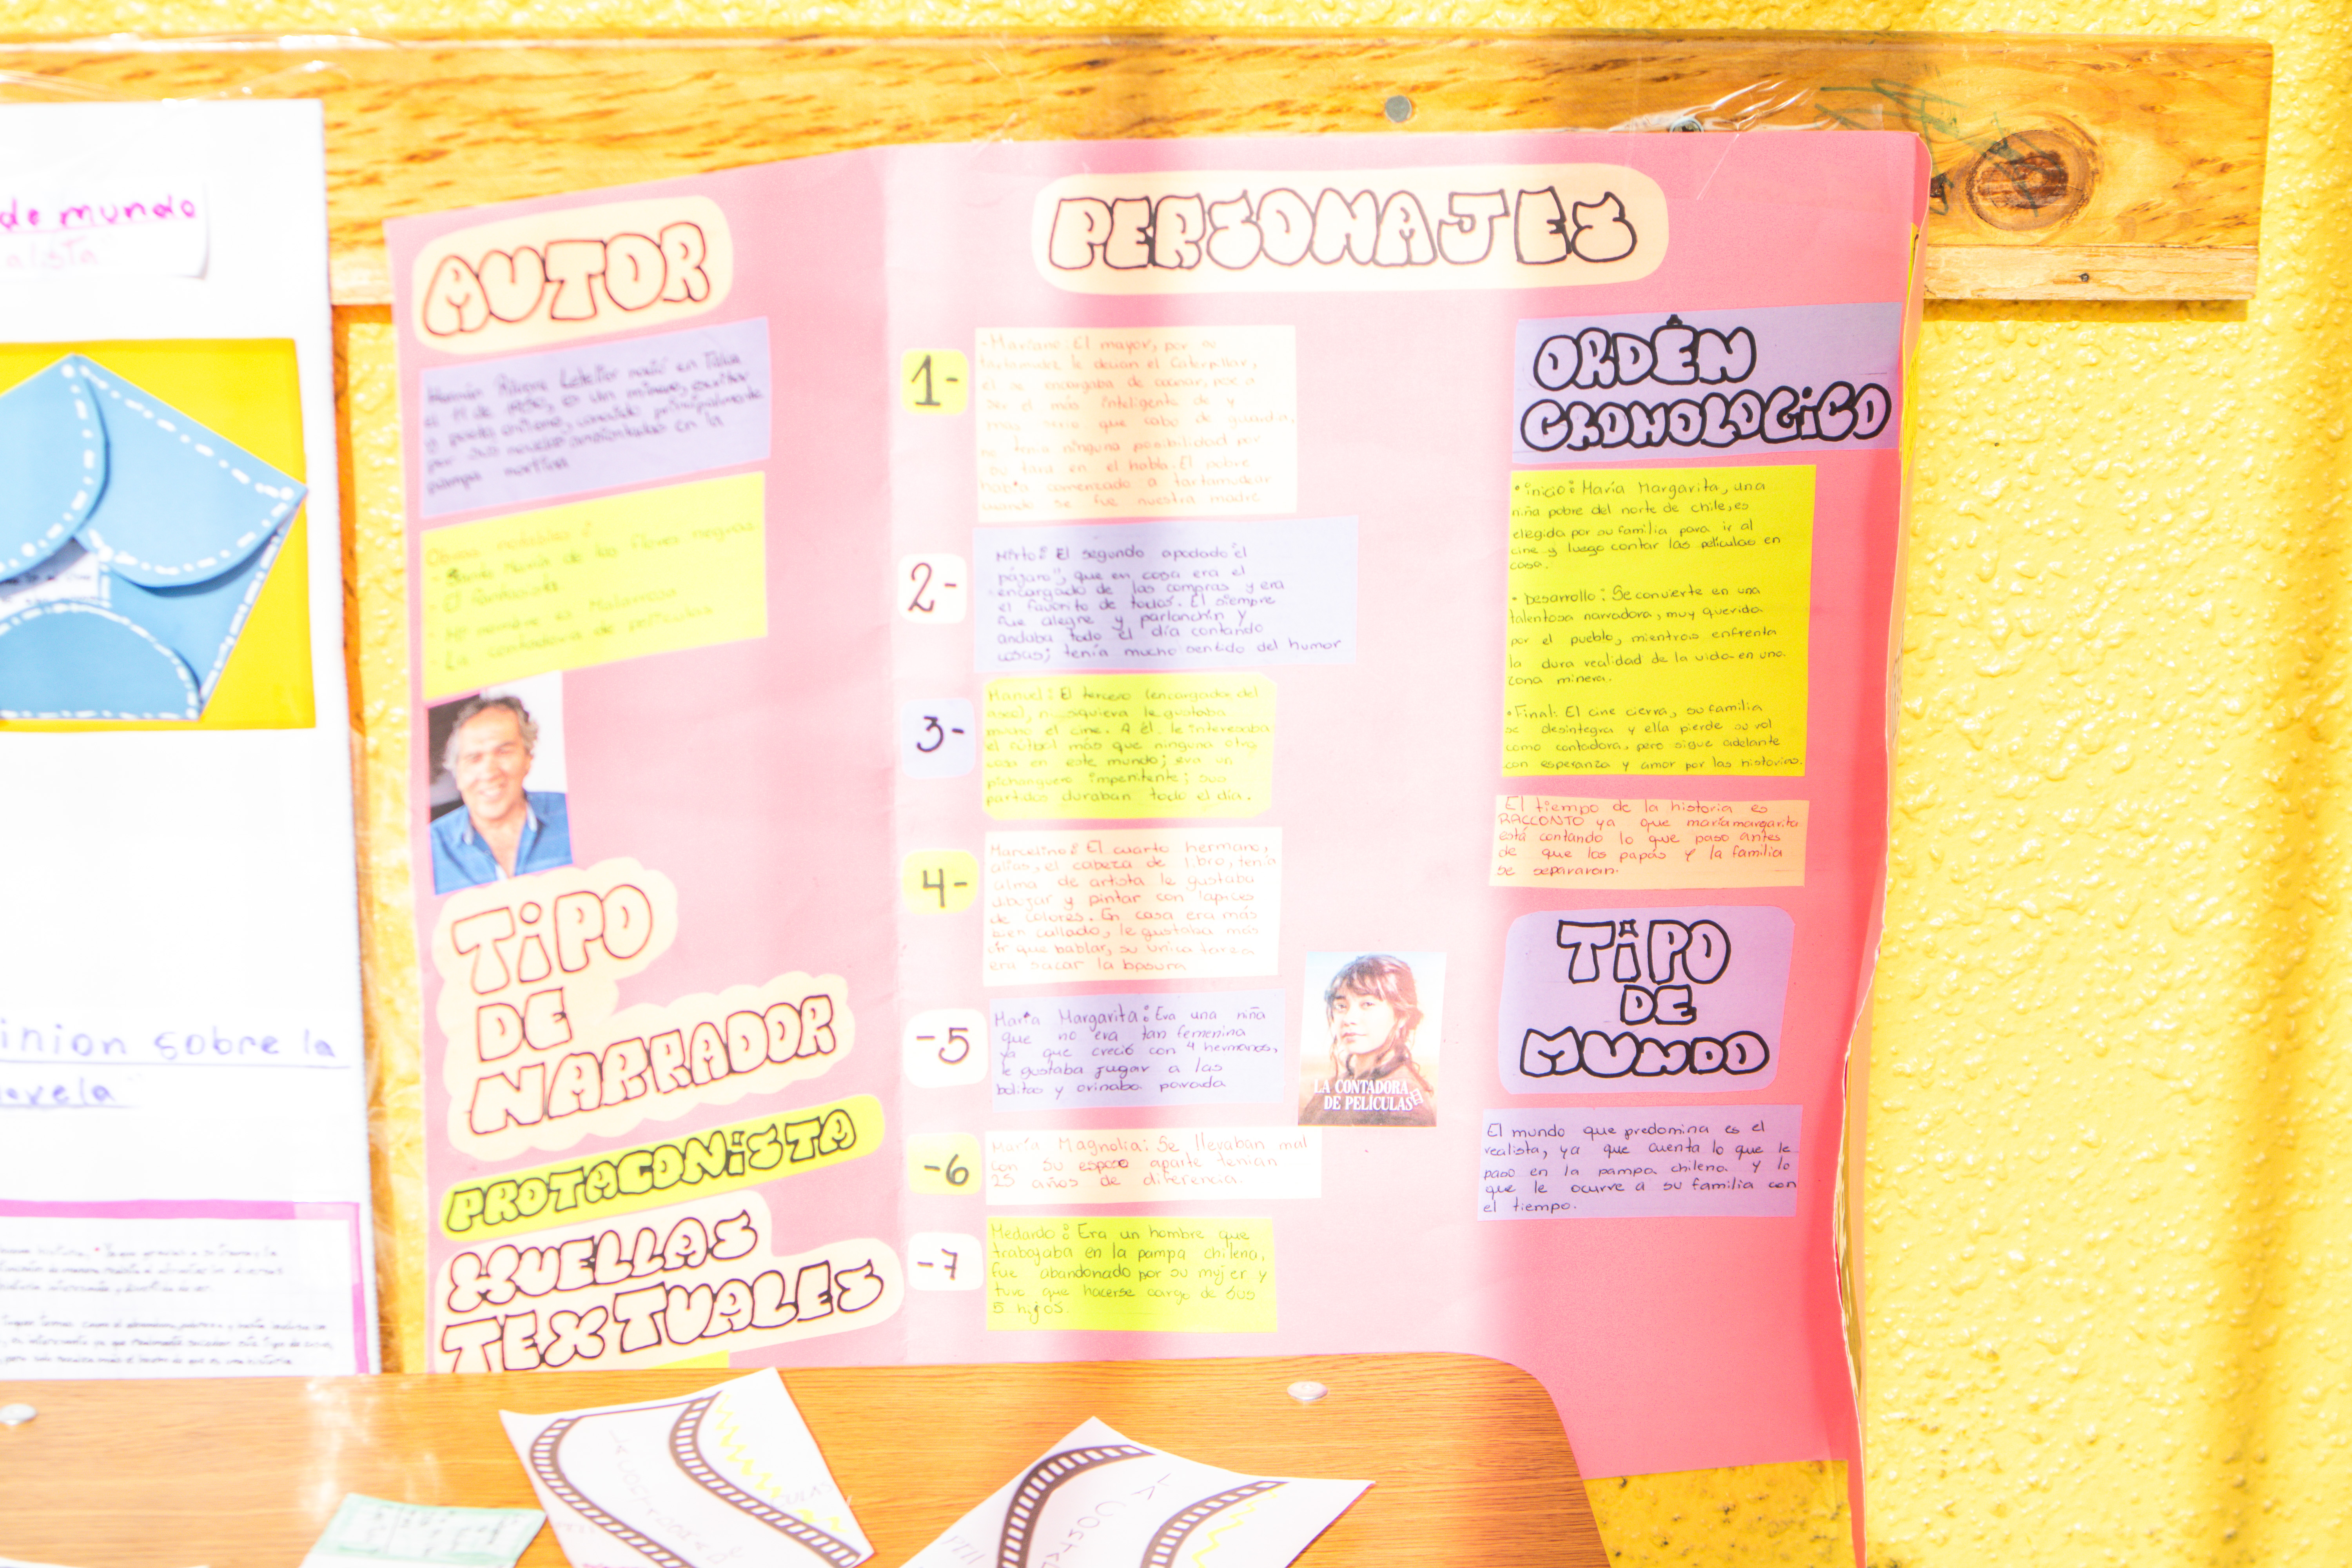 de mundo
inion sobre la
AUTOR
Hernán Rivera Letelier nació en Talca
el 11 de 1950, es un minero, escritor
y poeta chileno, conocido principalmente
por sus novelas ambientadas en la
pampa nortina
Obras notables:
- Santa María de las flores negras
- El fantasista
- Mi nombre es Malarrosa
- La contadora de películas
TIPO
DE
NARRADOR
PROTAGONISTA
HUELLAS
TEXTUALES
PERSONAJES
1-
-Mariano: El mayor, por su
tartamudez le decían el Caterpillar,
él se encargaba de cocinar, pese a
ser el más inteligente de y
más serio que cabo de guardia,
no tenía ninguna posibilidad por
su tara en el habla. El pobre
había comenzado a tartamudear
cuando se fue nuestra madre
2-
Mirto: El segundo apodado "el
pájaro", que en casa era el
encargado de las compras y era
el favorito de todos. El siempre
fue alegre y parlanchín y
andaba todo el día contando
cosas; tenía mucho sentido del humor
3-
Manuel: El tercero (encargador del
aseo), ni siquiera le gustaba
mucho el cine. A él le interesaba
el fútbol más que ninguna otra
cosa en este mundo; era un
pichanguero impenitente; sus
partidos duraban todo el día.
4-
Marcelino: El cuarto hermano,
alias, el cabeza de libro, tenía
alma de artista le gustaba
dibujar y pintar con lápices
de colores. En casa era más
bien callado, le gustaba más
oír que hablar, su unica tarea
era sacar la basura
-5
María Margarita: Era una niña
que no era tan femenina
ya que creció con 4 hermanos,
le gustaba jugar a las
bolitas y orinaba parada
LA CONTADORA
DE PELÍCULAS
-6
María Magnolia: Se llevaban mal
con su esposo aparte tenían
25 años de diferencia.
-7
Medardo: Era un hombre que
trabajaba en la pampa chilena,
fue abandonado por su mujer y
tuvo que hacerse cargo de sus
5 hijos.
ORDÉN
CRONOLOGICO
• inicio: María Margarita, una
niña pobre del norte de chile, es
elegida por su familia para ir al
cine y luego contar las películas en
casa.
• Desarrollo: Se convierte en una
talentosa narradora, muy querida
por el pueblo, mientras enfrenta
la dura realidad de la vida en una
zona minera.
• Final: El cine cierra, su familia
se desintegra y ella pierde su rol
como contadora, pero sigue adelante
con esperanza y amor por las historias.
El tiempo de la historia es
RACCONTO ya que maríamargarita
está contando lo que paso antes
de que los papás y la familia
se separaran.
TIPO
DE
MUNDO
El mundo que predomina es el
realista, ya que cuenta lo que le
paso en la pampa chilena y lo
que le ocurre a su familia con
el tiempo.